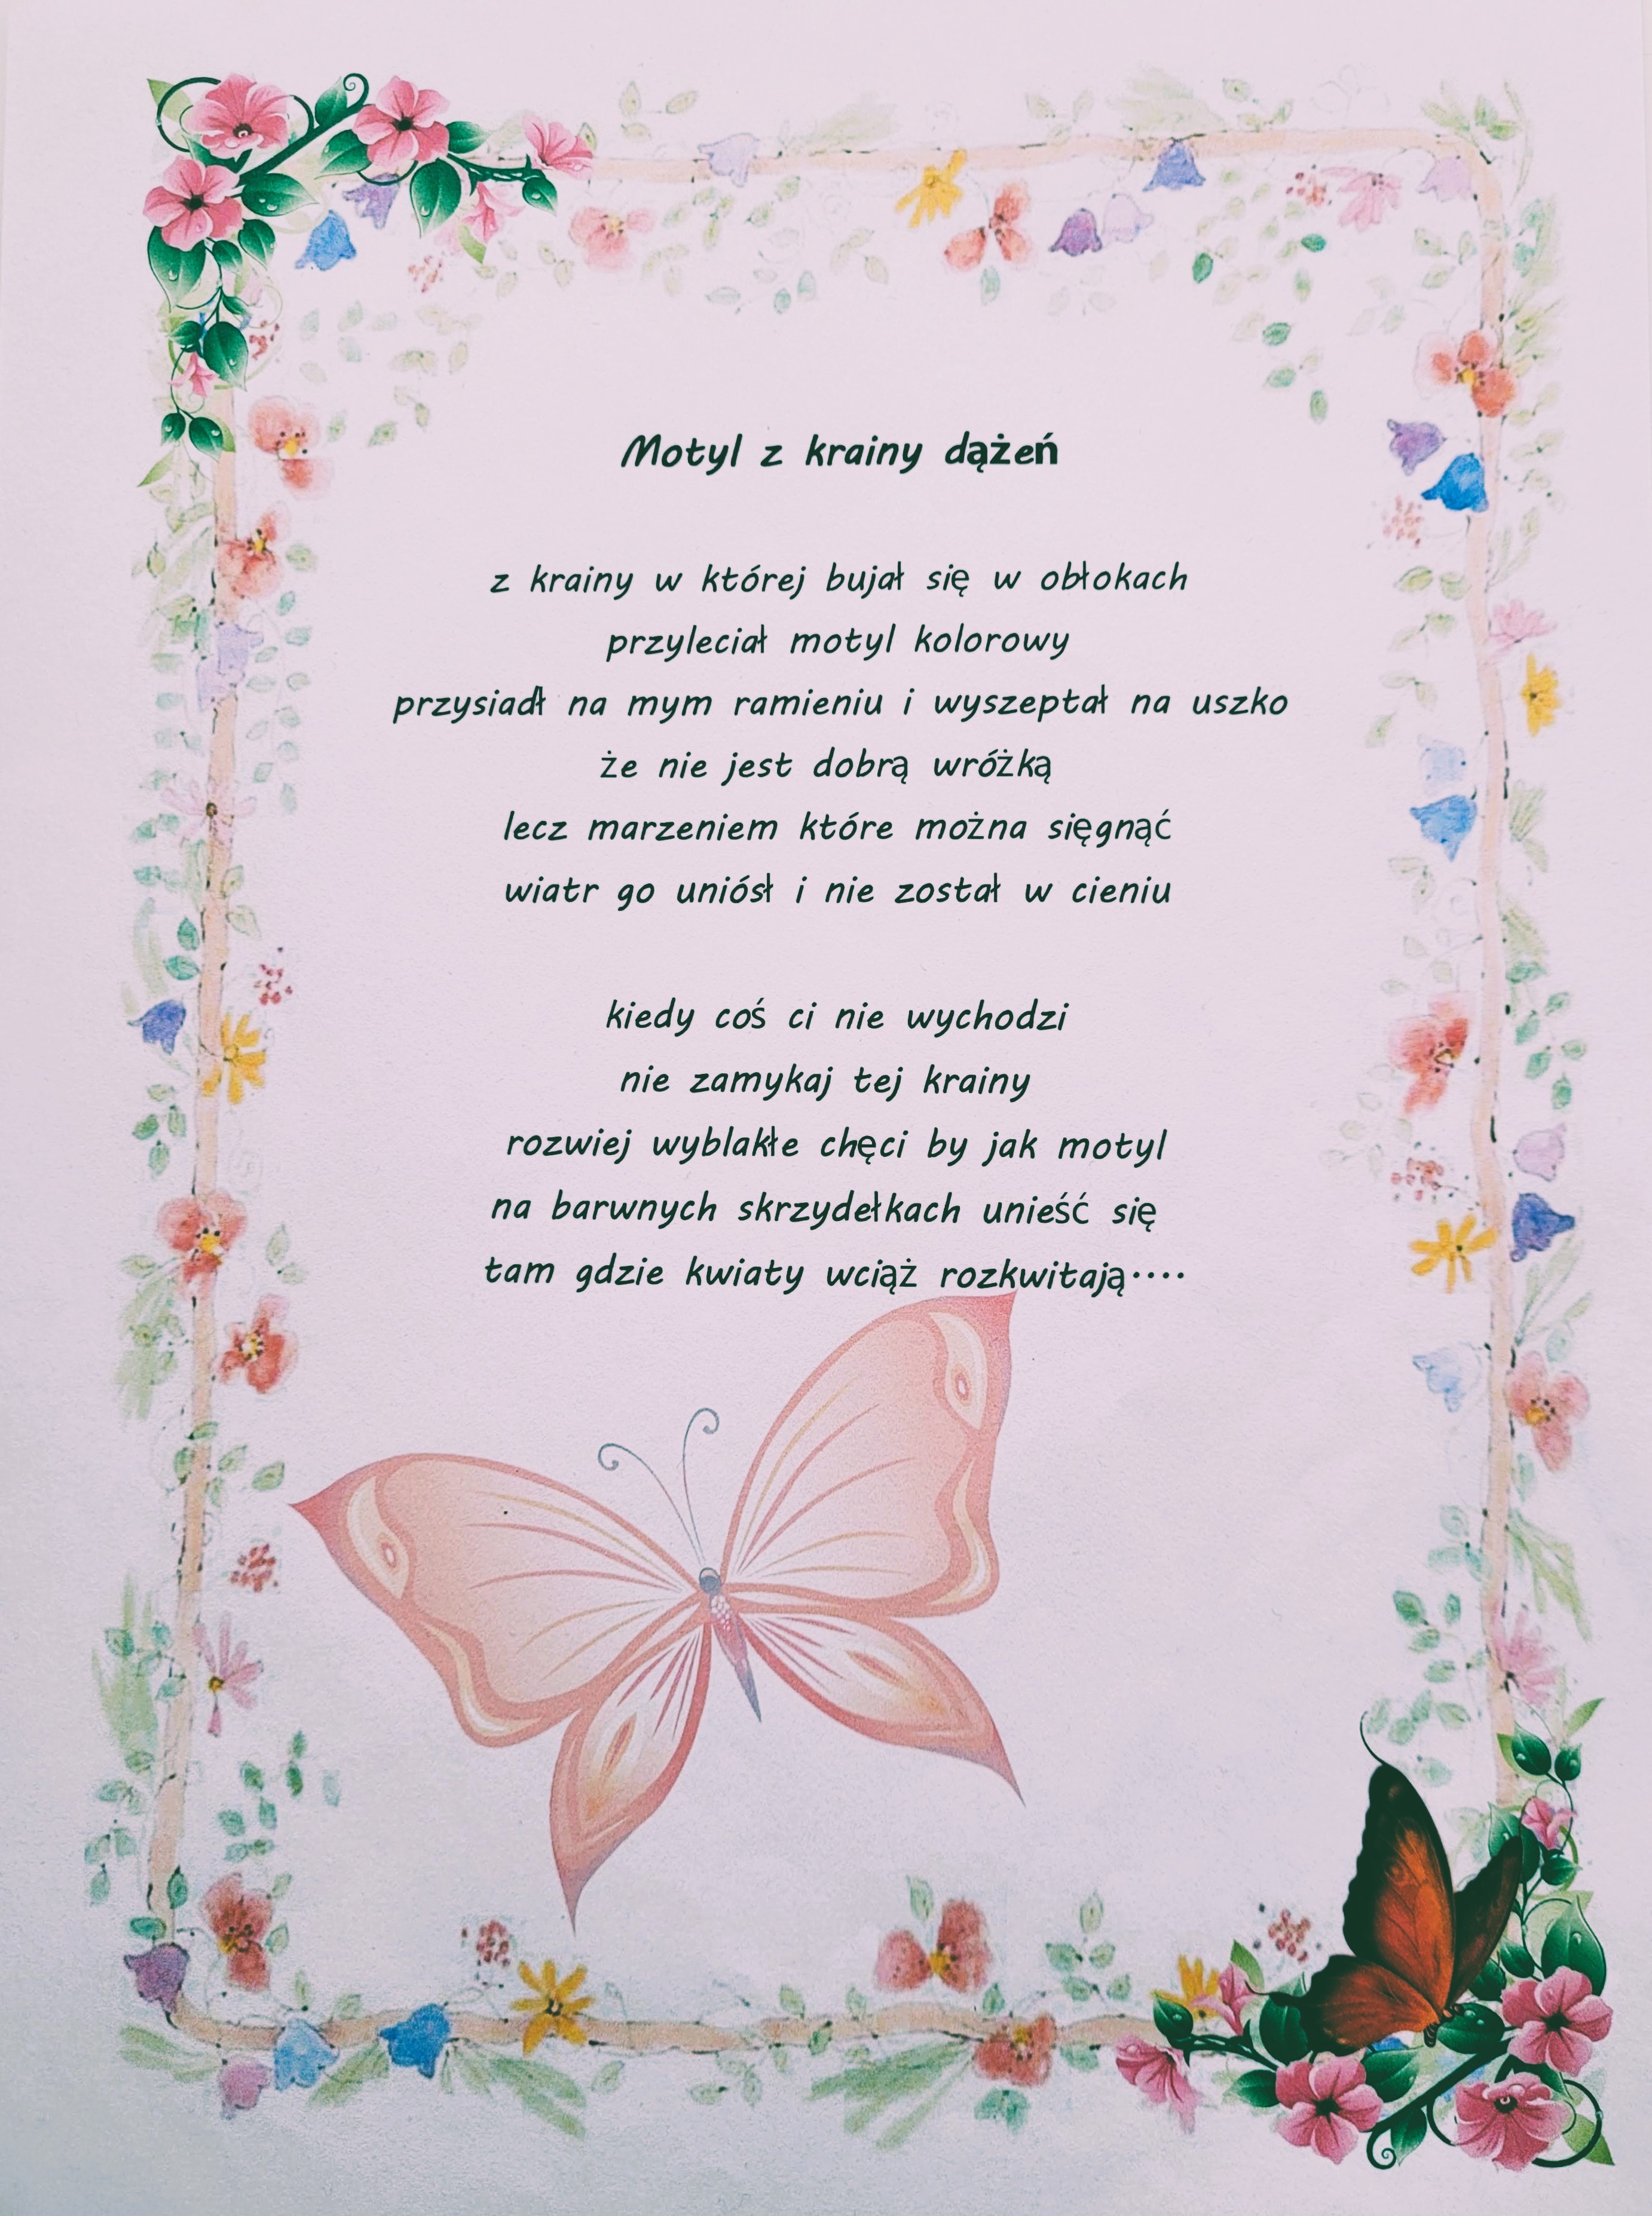 Motyl z krainy dążeń
z krainy w której bujał się w obłokach
przyleciał motyl kolorowy
przysiadł na mym ramieniu i wyszeptał na uszko
że nie jest dobrą wróżką
lecz marzeniem które można sięgnąć
wiatr go uniósł i nie został w cieniu
kiedy coś ci nie wychodzi
nie zamykaj tej krainy
rozwiej wyblakłe chęci by jak motyl
na barwnych skrzydełkach unieść się
tam gdzie kwiaty wciąż rozkwitają....